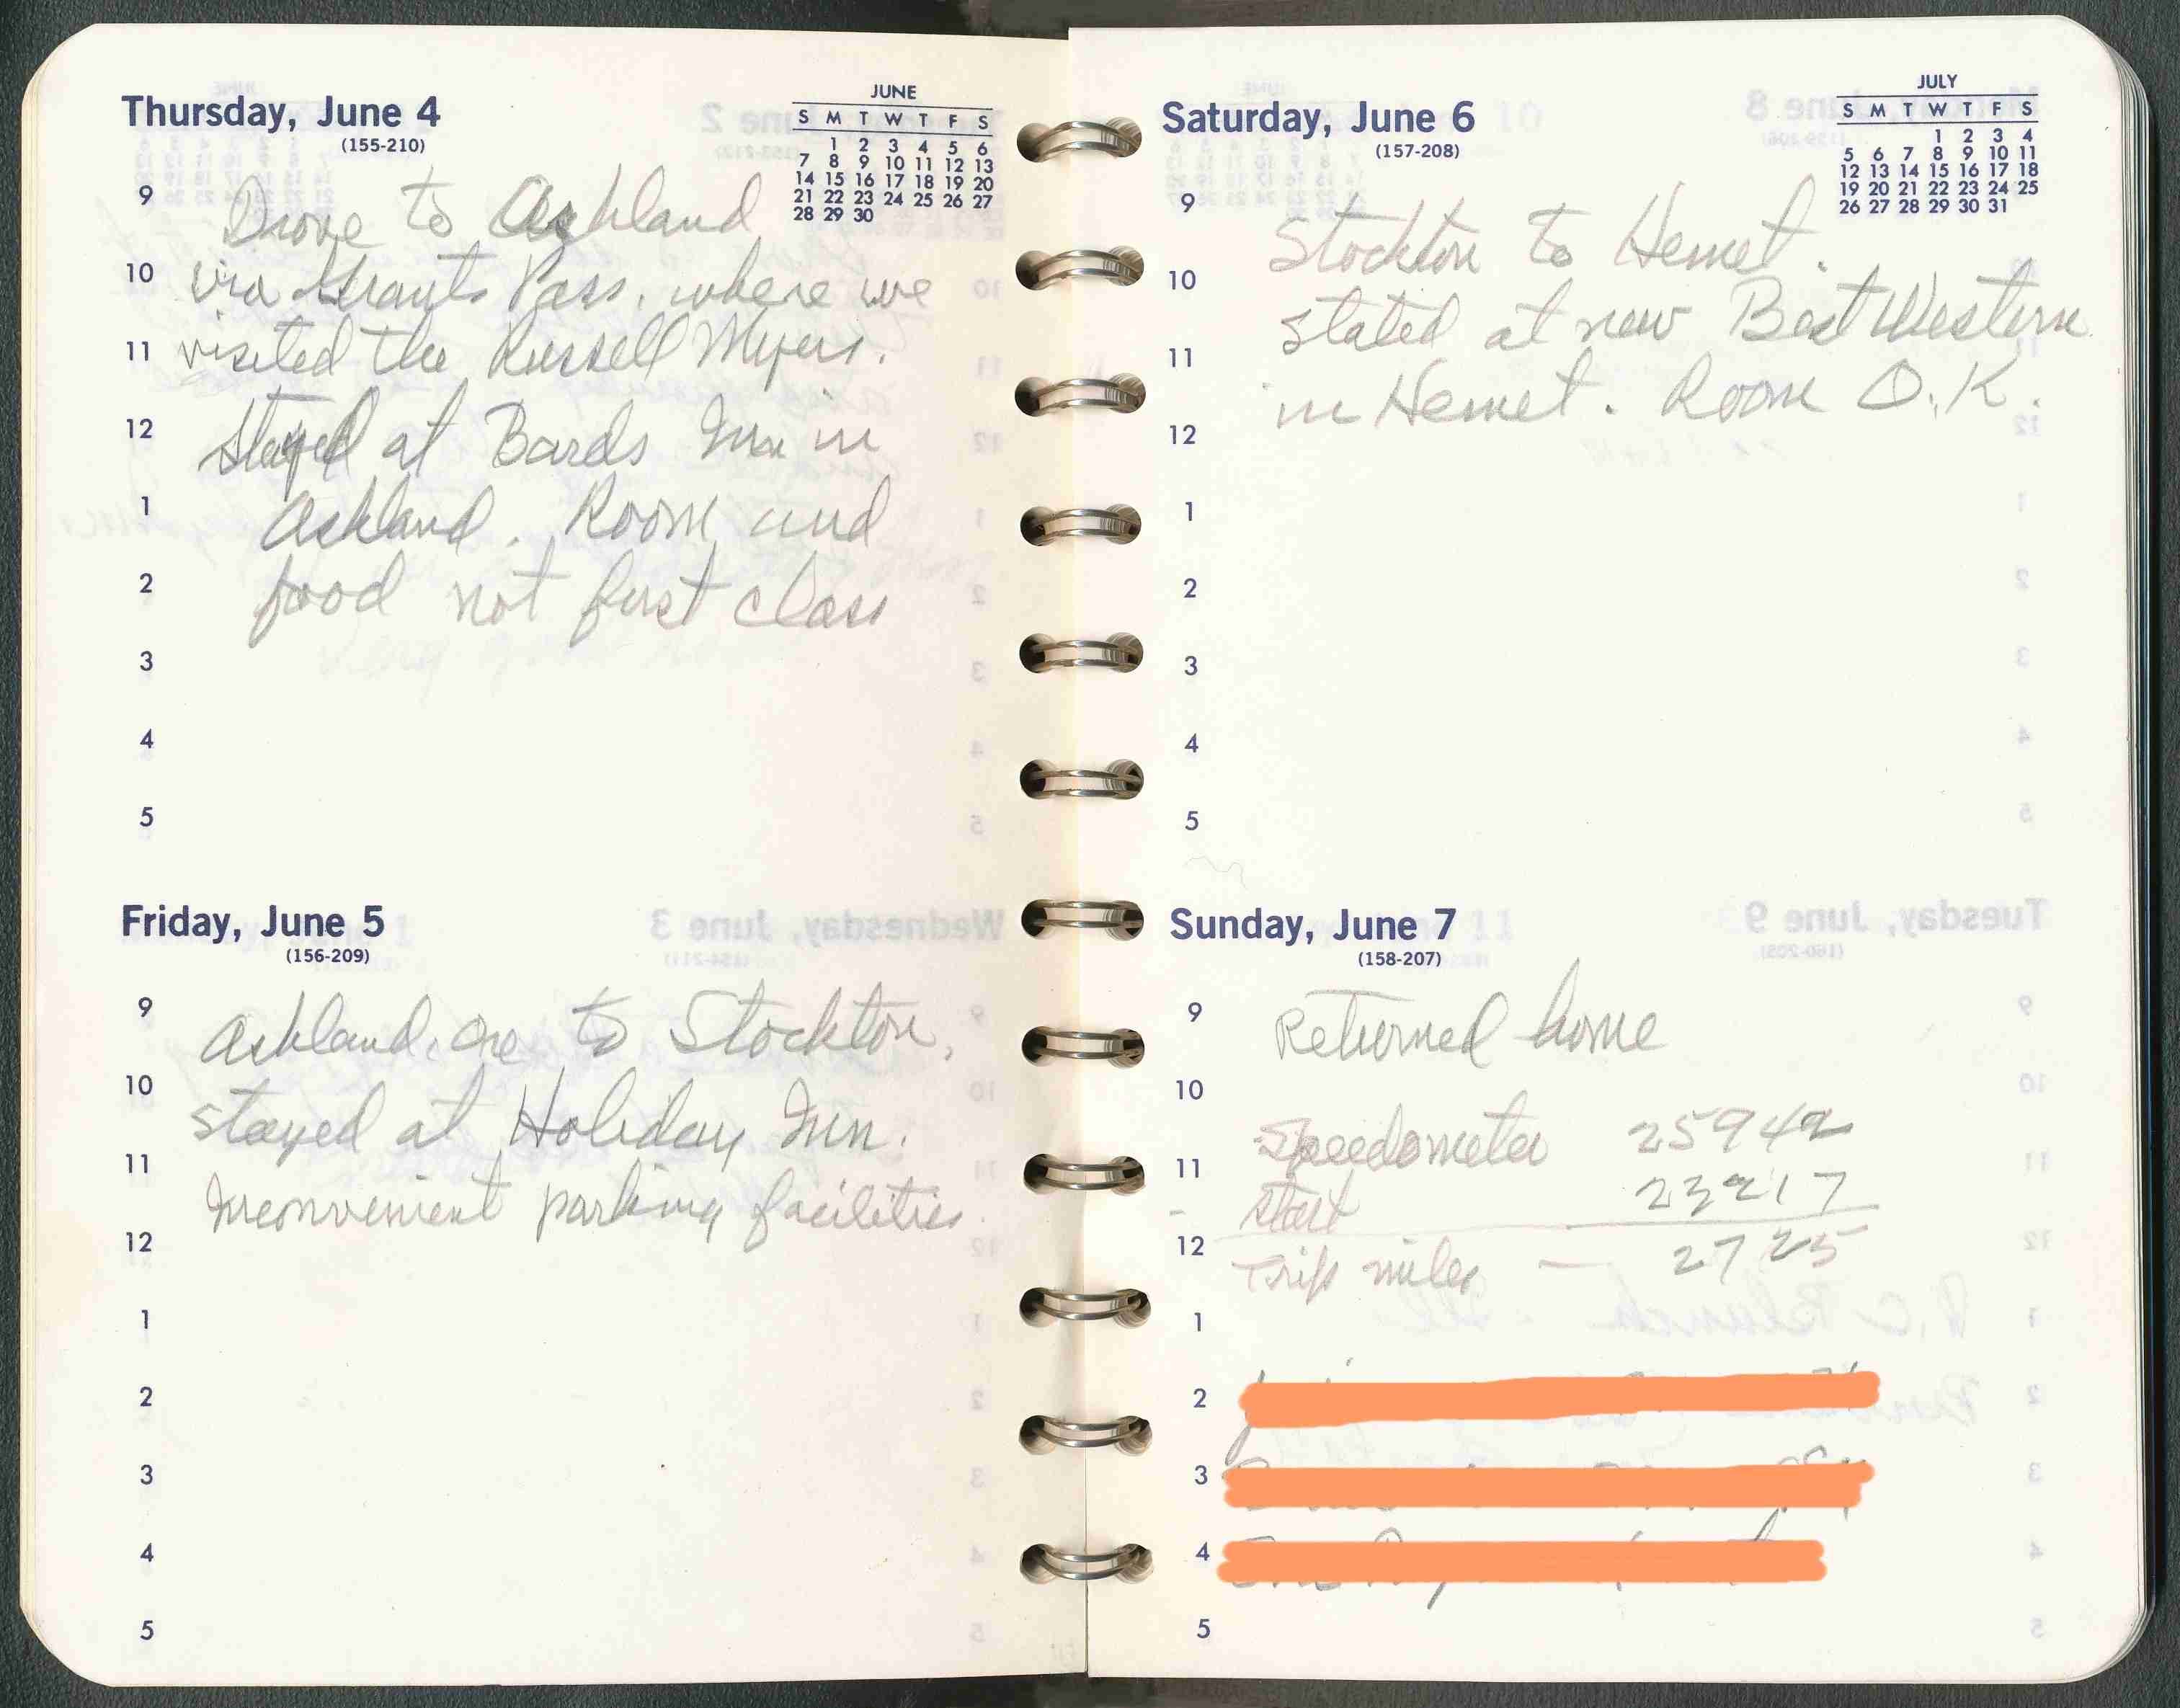 Thursday, June 4
(155-210)
JUNE
S M T W T F S
1 2 3 4 5 6
7 8 9 10 11 12 13
14 15 16 17 18 19 20
21 22 23 24 25 26 27
28 29 30
9
Drove to Ashland
10
via Grants Pass, where we
11
visited the Russell Myers.
12
Stayed at Bards Inn in
1
Ashland. Room and
2
food not first class
3
4
5
Friday, June 5
(156-209)
9
Ashland, Ore to Stockton,
10
stayed at Holiday Inn.
11
Inconvenient parking facilities.
12
1
2
3
4
5
Saturday, June 6
(157-208)
JULY
S M T W T F S
1 2 3 4
5 6 7 8 9 10 11
12 13 14 15 16 17 18
19 20 21 22 23 24 25
26 27 28 29 30 31
9
Stockton to Hemet.
10
Stated at new Best Western
11
in Hemet. Room O.K.
12
1
2
3
4
5
Sunday, June 7
(158-207)
9
Returned home
10
Speedometer 25942
11
Start 23217
12
Trip miles — 2725
1
2
3
4
5